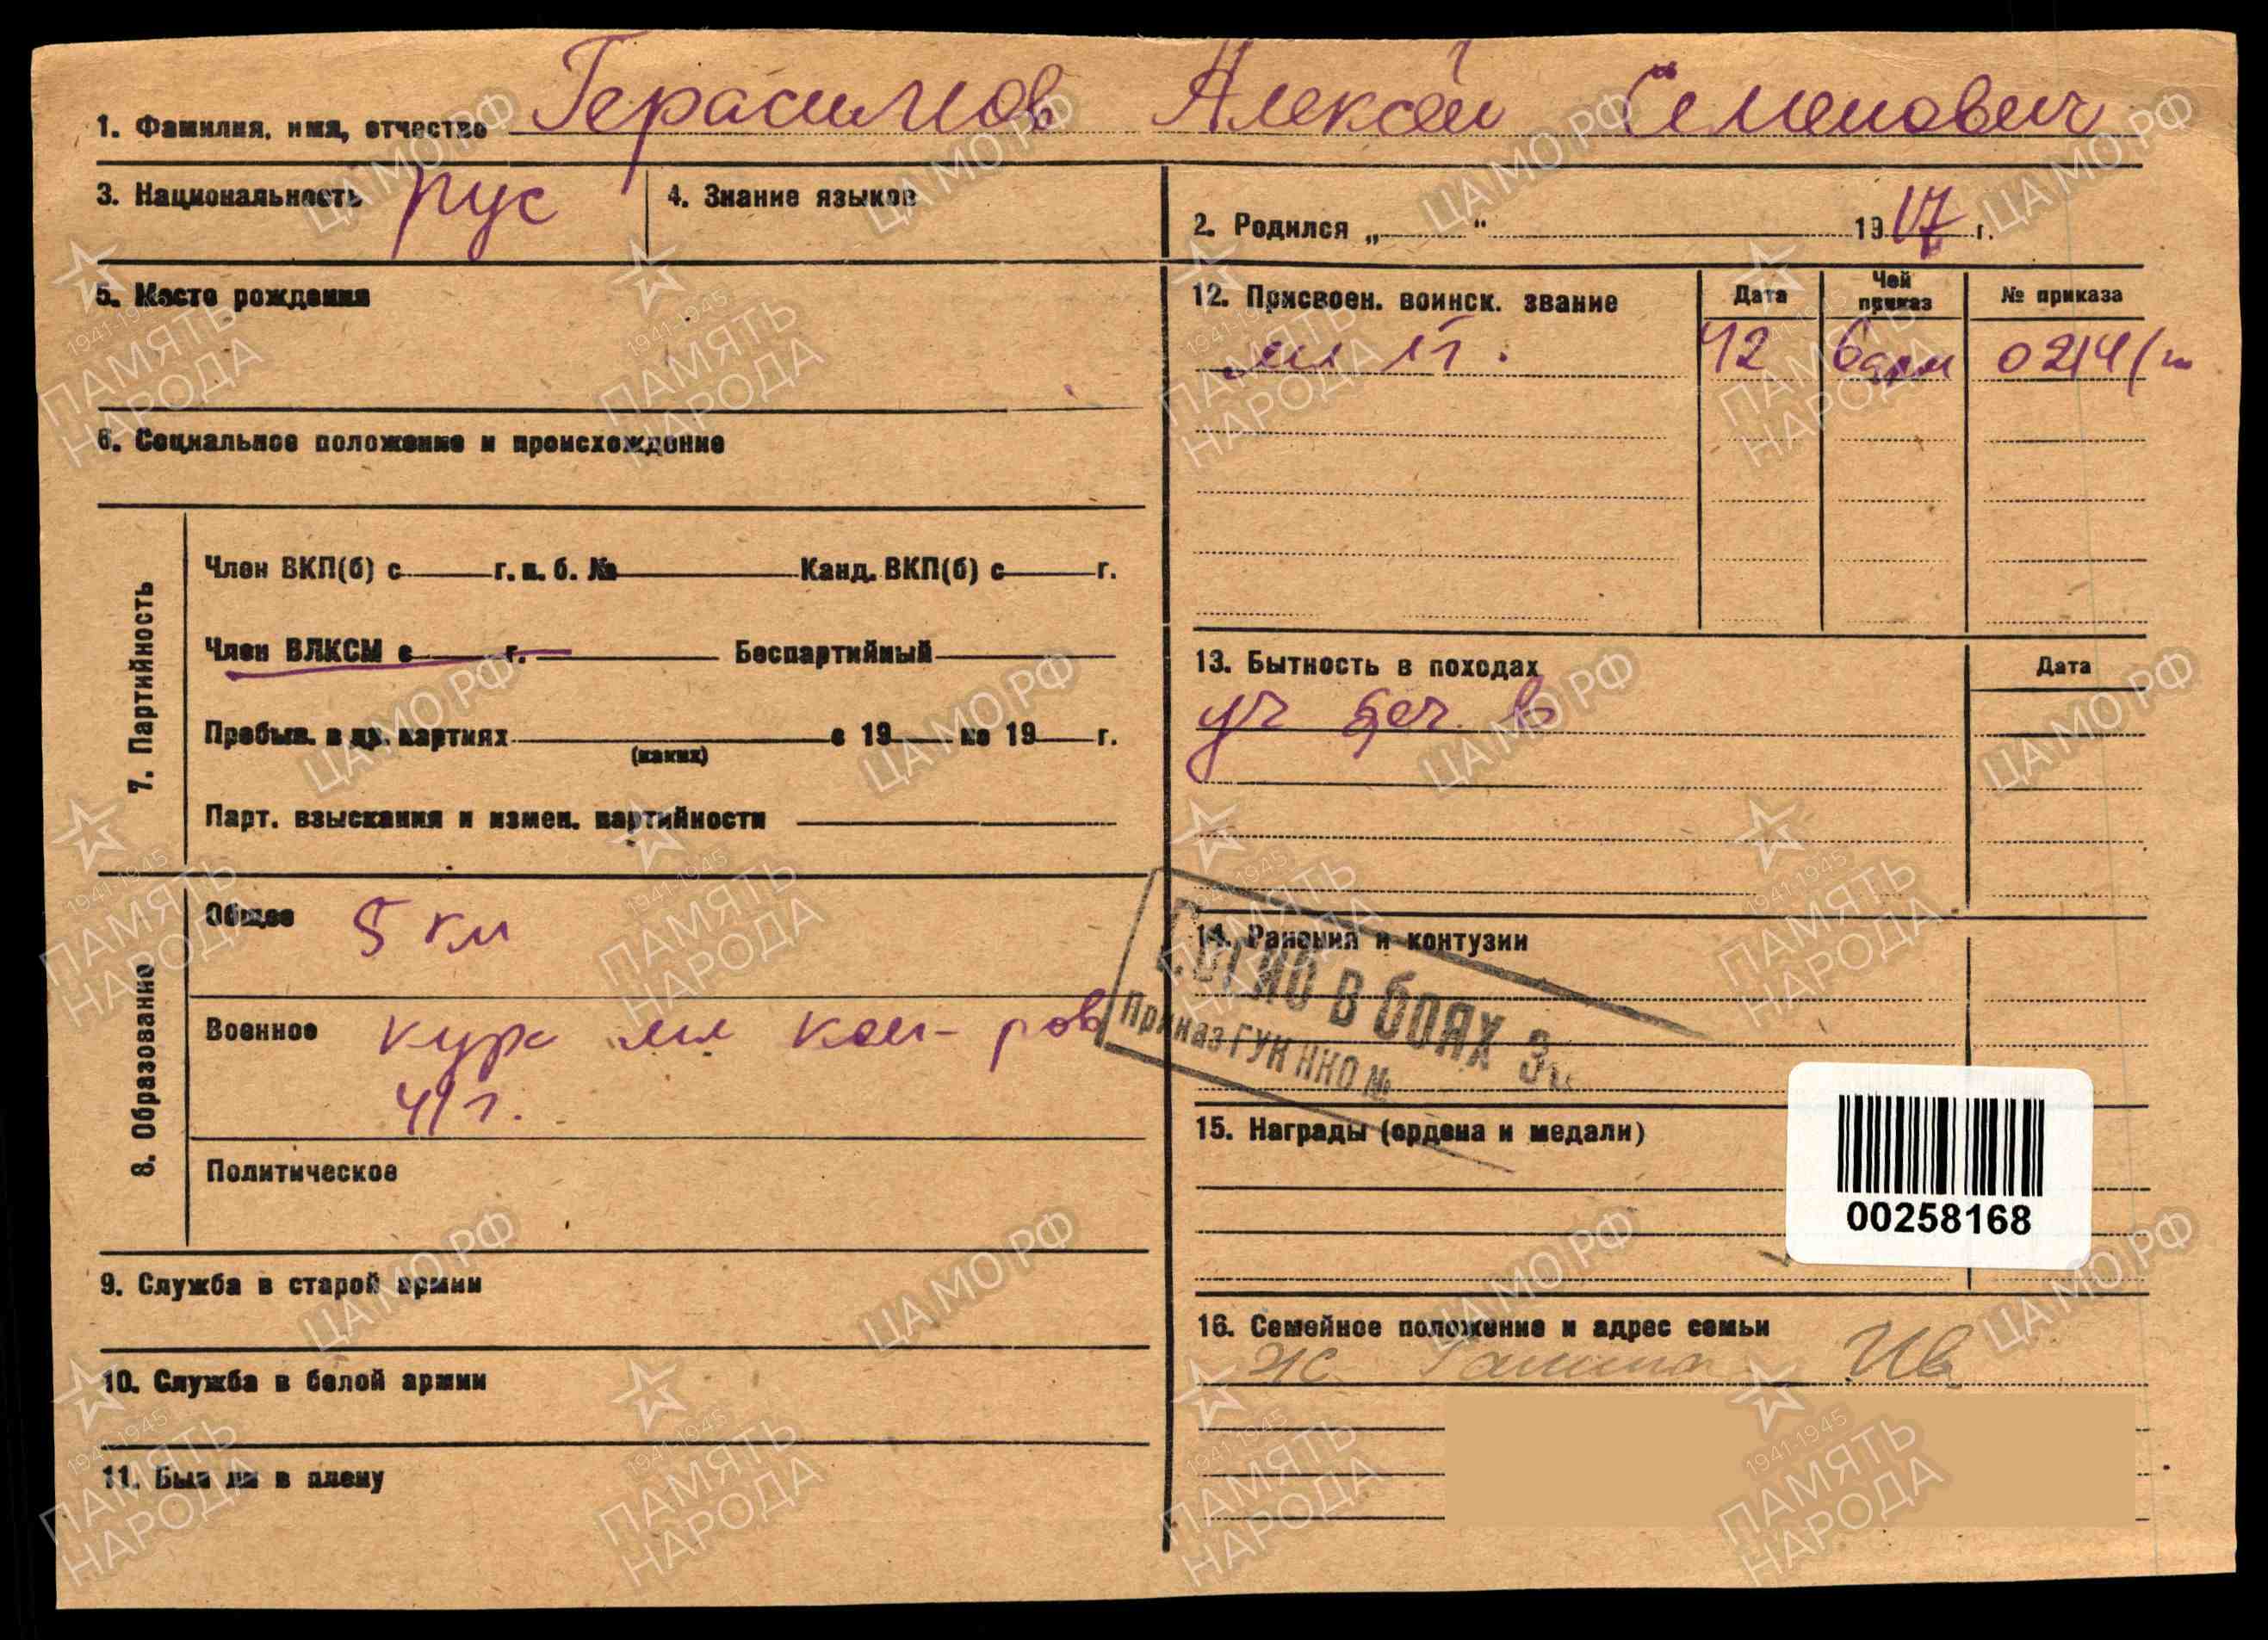 1. Фамилия, имя, отчество Герасимов Алексей Семенович
3. Национальность рус
4. Знание языков
2. Родился „ “ 1917 г.
5. Место рождения
6. Социальное положение и происхождение
7. Партийность
Член ВКП(б) с г. п. б. № Канд. ВКП(б) с г.
Член ВЛКСМ с г. Беспартийный
Пребыв. в др. партиях с 19 по 19 г.
(каких)
Парт. взыскания и измен. партийности
8. Образование
Общее 5 кл
Военное курс мл ком-ров
41 г.
Политическое
9. Служба в старой армии
10. Служба в белой армии
11. Был ли в плену
12. Присвоен. воинск. звание Дата Чей приказ № приказа
мл лт. 42 6 арм 0214/
13. Бытность в походах Дата
уч в
14. Ранения и контузии
ПОГИБ В БОЯХ
Приказ ГУК НКО №
15. Награды (ордена и медали)
00258168
16. Семейное положение и адрес семьи
ж. Галина Ив
ЦАМО.РФ
1941-1945
ПАМЯТЬ
НАРОДА